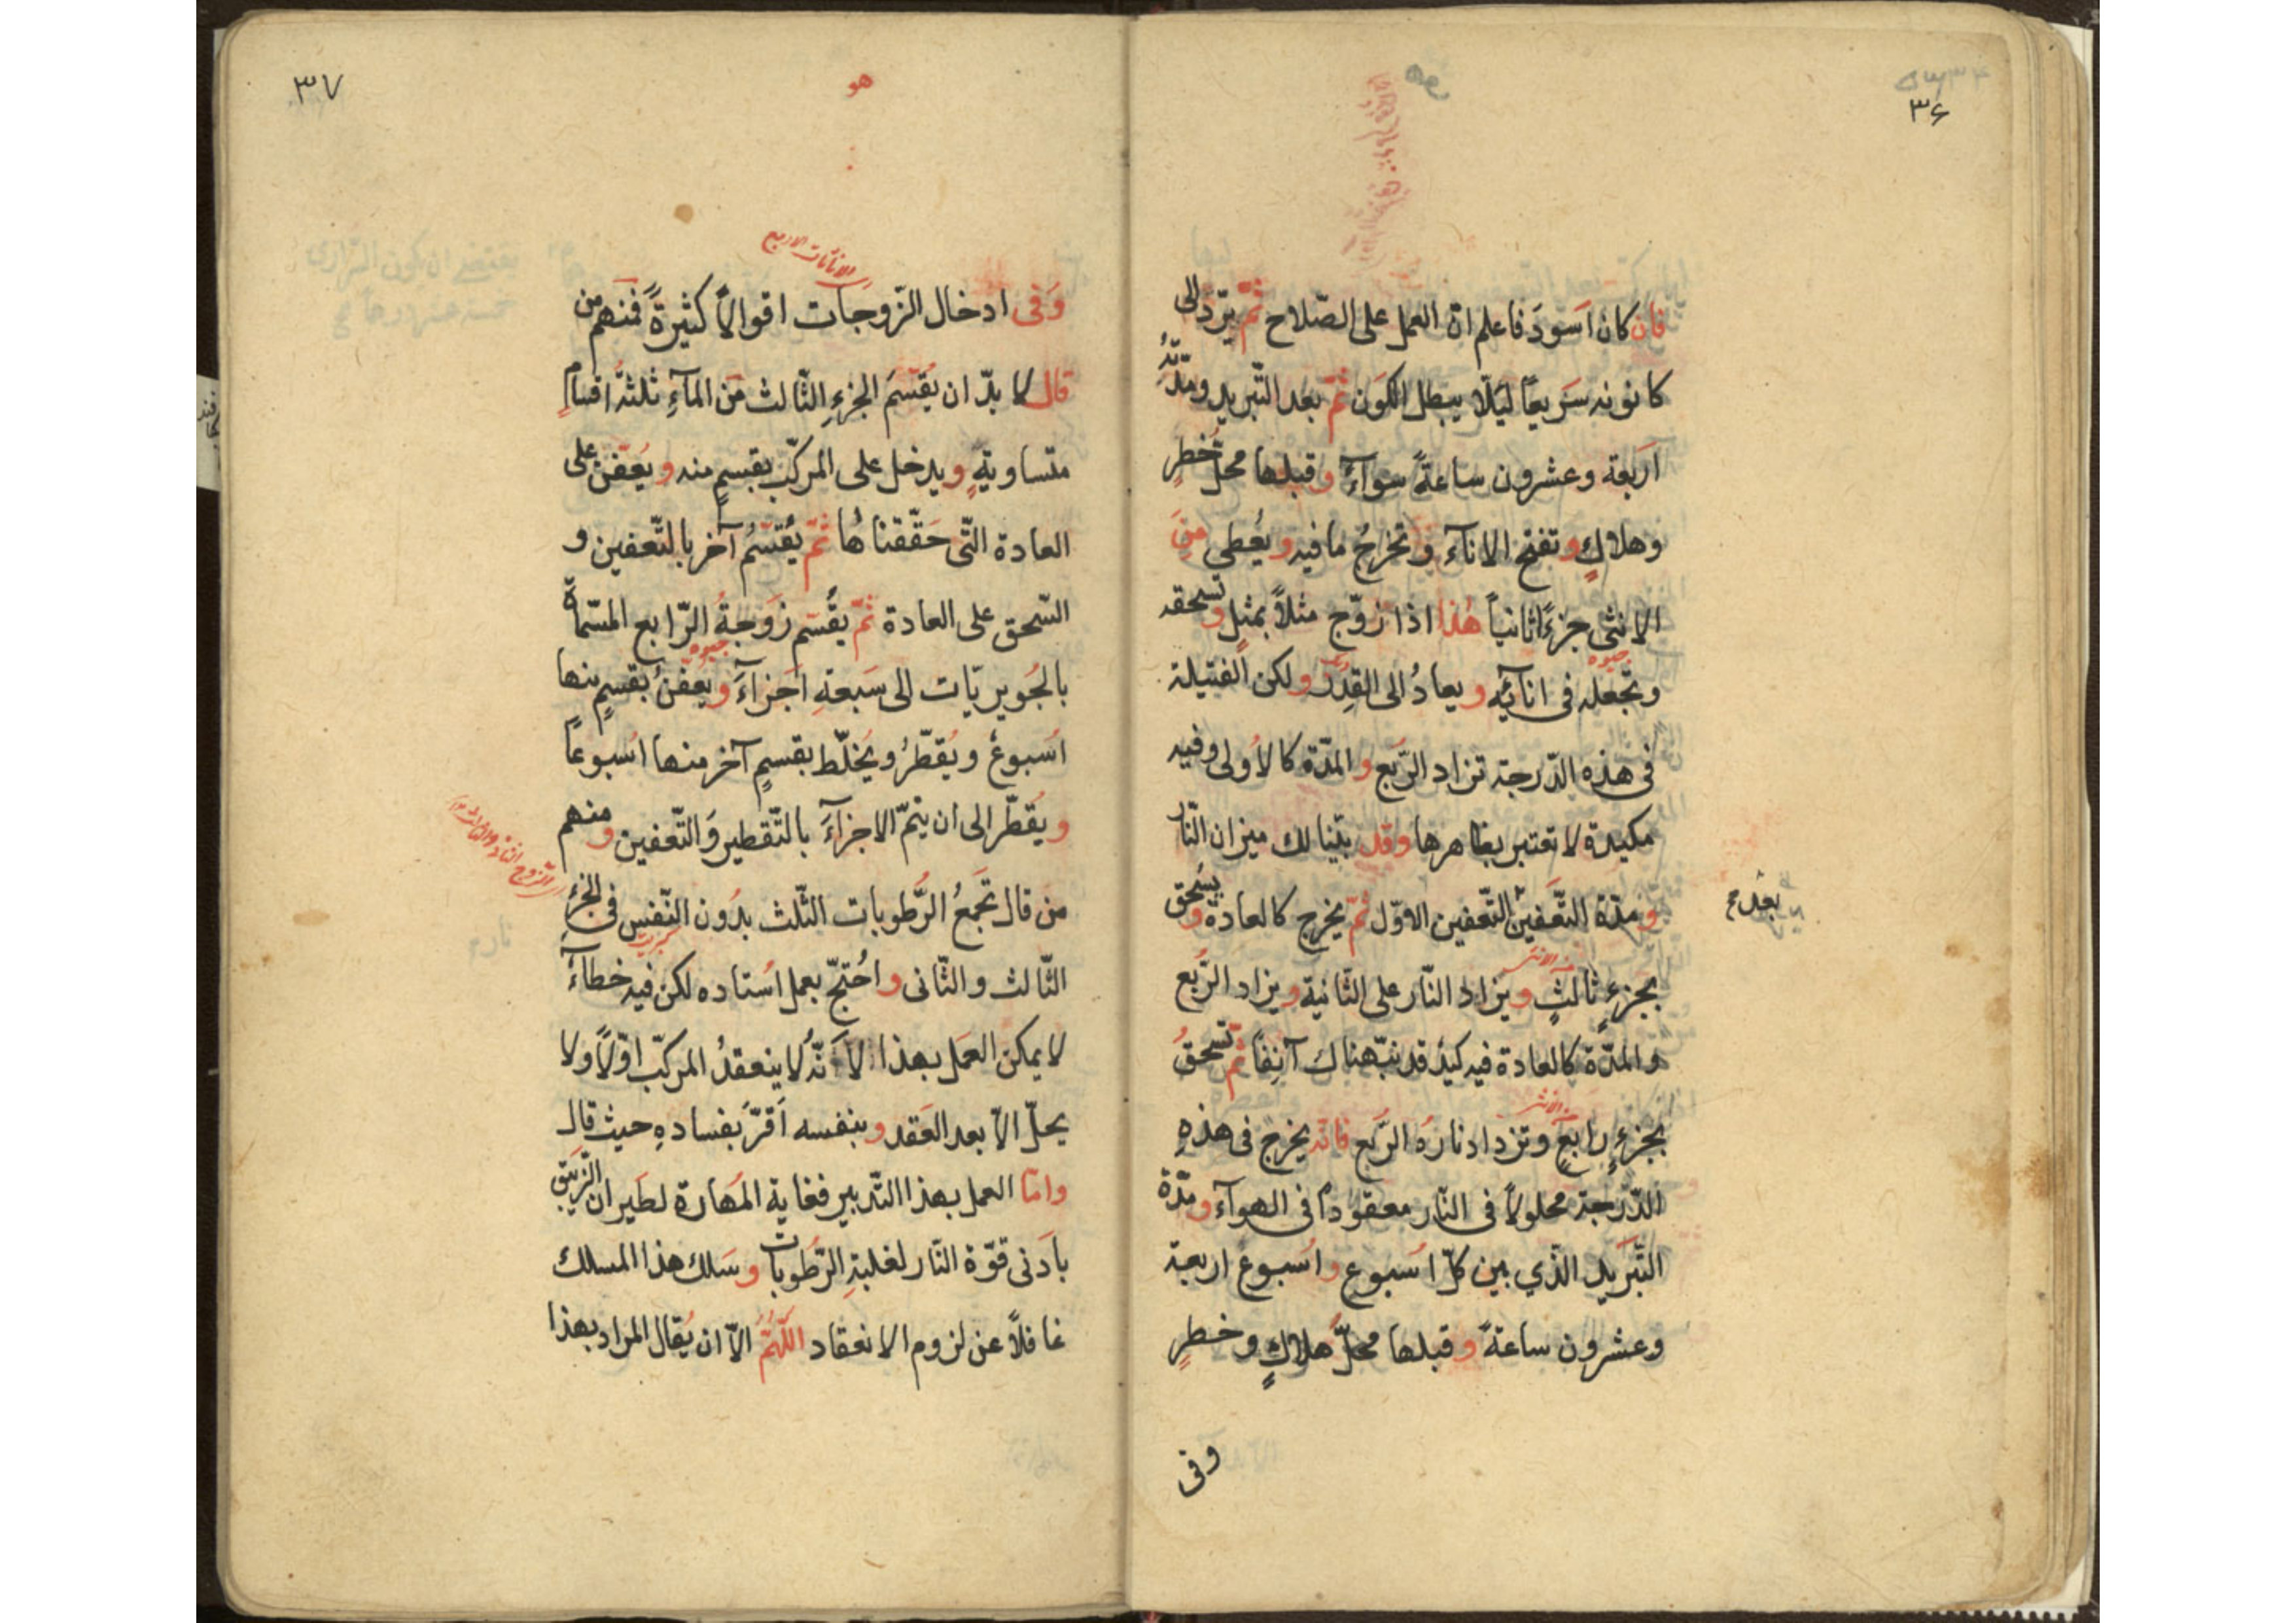 ۳۶
فان كان اسودَ فاعلم انّ العمل على الصّلاح ثمّ يرّد الى
كانونه سَريعاً ليَلّا يبطل الكَون ثمّ بعد التّبريد ومدّته
اَربعة وعشرون ساعةً سوآءٌ وقبلها محلّ خطرٍ
وهلاكٍ وتفتح الانآء وتخرجُ مافيه ويُعطى من
الانثى جزءًا ثانياً هٰذا اذا زوّج مثلاً بمثلٍ وتسحقه
وتجعله فى انائِه ويعادُ الى القِدر ولكن الفتيلة
فى هذه الدّرجة تزاد الرّبع والمدّة كالاُولى وفيه
مكيدة لا تعتبر بظاهرها وقد بيّنا لك ميزان النّار
ومدّة التّعفين التّعفين الاوّل ثمّ يخرج كالعادة ويسحق
بعد
بجزءٍ ثالثٍ ويزاد النّار على الثّانية ويزاد الرّبع
والمدّة كالعادة فيه كيدٌ قد نبّهناك آنِفاً ثمّ تسحقُ
بجزءٍ رابعٍ وتزداد نارهُ الرّبع فانّه يخرج فى هذهِ
الدّرجة محلولاً فى النّار معقوداً فى الهوآء ومدّة
التّبريد الّذي بين كلّ اُسبوع واُسبوع اربعة
وعشرون ساعةً وقبلها محلّ هلاكٍ وخطرٍ
وفى
۳۷
هو
الاناثات الاربع
وَفى ادخال الزّوجات اقوالاً كثيرةً فمنهم من
قال لا بدّ ان يُقسّمَ الجزءِ الثّالث من المآءِ ثلثة اقسامٍ
متساويةٍ ويدخل على المركّب بقسمٍ منه ويُعفّن على
العادة الّتى حَقّقناها ثمّ يُقسّمُ آخر بالتّعفين و
السّحق على العادة ثمّ يقَسّم زَوجةُ الرّابع المسمّاة
جيوه
بالجُويريّات الى سَبعةِ اَجزآءَ ويُعفّنُ بقسمٍ منها
اُسبوعٌ ويُقطّرُ ويُخلّط بقسمٍ آخر منها اُسبوعاً
ويُقطّر الى ان يتمّ الاجزآءَ بالتّقطير وَالتّعفين ومنهم
من قال تَجمعُ الرُّطوبات الثّلث بدُون النّفس فى الجزء
كبريت
الثّالث والثّانى واحُتجّ بعمل اُستاده لكن فيه خطاءٌ
لا يمكن العمَل بهذا لأَنّهُ لا ينعقدُ المركّب اوّلاً ولا
يحلّ الاّ بعد العَقد وبنفسه اَقرّ بفسادهِ حيث قال
وامّا العمل بهذا التّدبير فغاية المَهارة لطَيران الزّيبق
باَدنى قوّة النّار لغلبةِ الرّطُوبات وسَلك هذا المسلك
غافلاً عن لزوم الانعقاد اللّهُمّ الاّ ان يُقال المراد بهذا